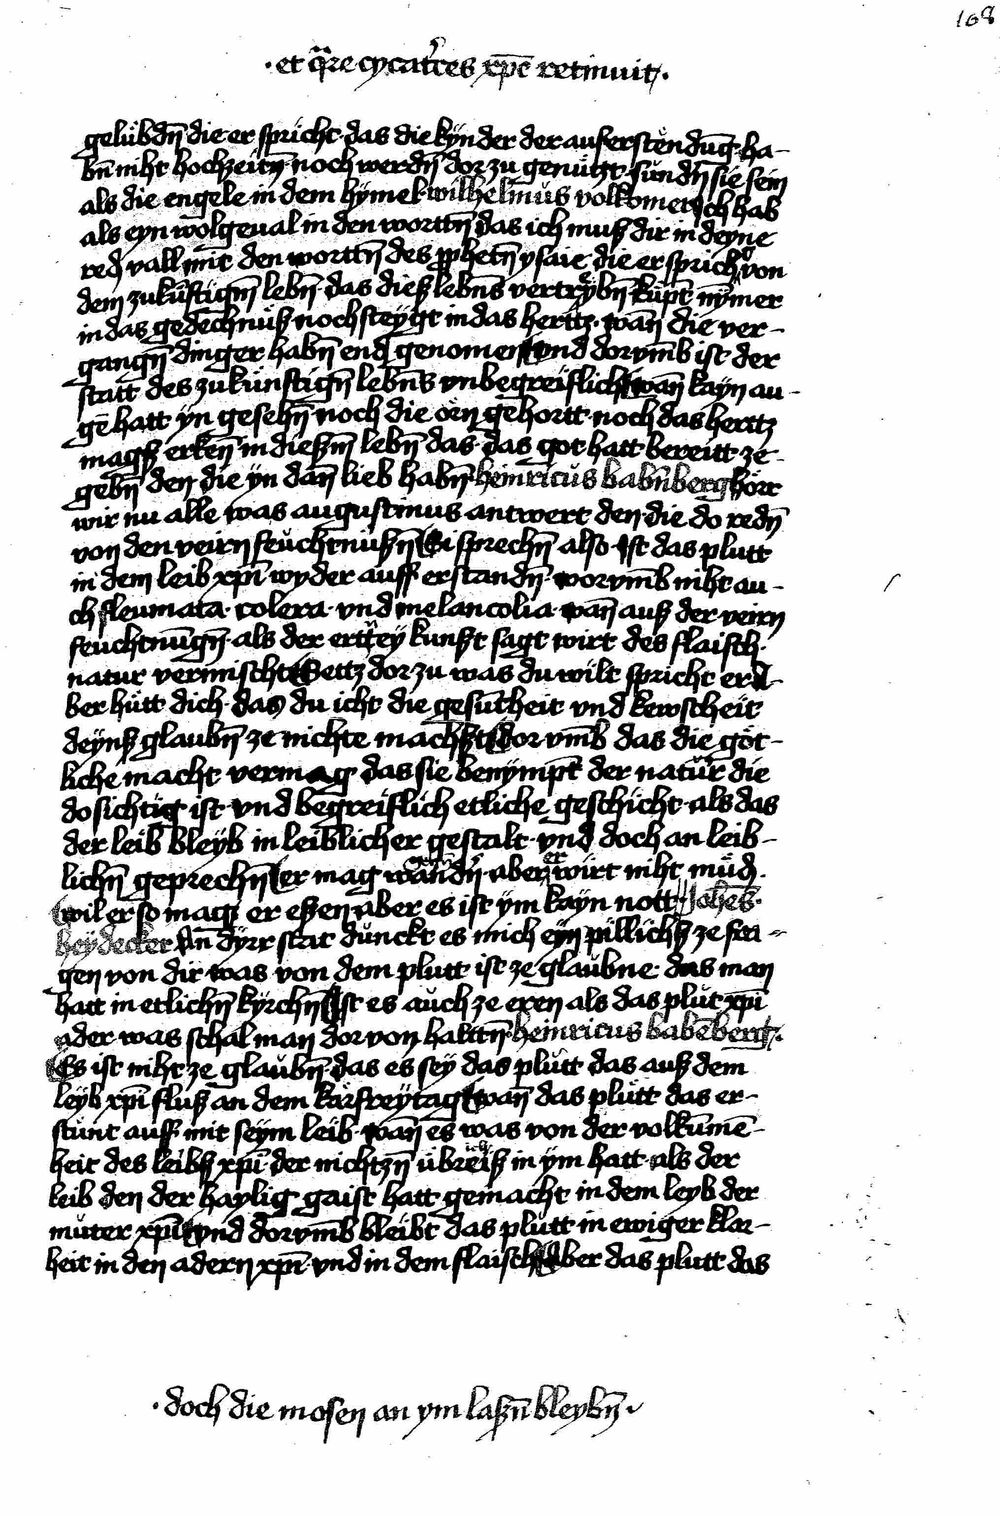 168
· et qͣre cycatͥces xp̄c retinuit ·
gelubdn̄ die er spricht · das die kynder der aufersten dūg · ha-
bn̄ niht hochzeitn̄ · noch werdn̄ dor zu genutzt · sundn̄ sie sein
als die engele in dem hymel · wilhelmus volkomer Ich hab
als eyn wolgeual in den worttn̄ das ich muß dir in deyne
red vall mit den worttn̄ des ꝓphetn̄ ysaie die er sprichͦ von
dem zukūftign̄ lebn̄ · das dieß lebn̄s vertrybn̄ kūpt nȳmer
in das gedechnuß noch steygt in das hertz · wān die ver-
gangn̄ dinger habn̄ end genomen vnd dorvm̄b ist der
statt des zukunftign̄ lebn̄s vnbegreiflich wān kayn au-
gē hatt yn gesehn̄ noch die orn gehortt · noch das hertz
magß erkēn in dießm̄ lebn̄ das · das got hatt bereitt ze
gebn̄ den die yn dān lieb habn̄ · heinricus babn̄berg hört
wir nu alle was augustinus antwert den die do redn̄
von den veirn feuchtnußn̄ Si sprechn̄ also Ist das plutt
in dem leib xpī wyder auff erstandn̄ · worvm̄b niht au-
ch fleumata · colera · vnd melancolia · wān auß der veirn
feuchtnūgn̄ · als der ertzey kunst sagt wirt des flaisch·
natur vermischt Settz dor zu was du wilt spricht er A-
ber hütt dich · das du icht die gesūtheit vnd kewscheit
deynß glaubn̄ ze nichte machst dor vm̄b das die göt-
liche macht vermag das sie benympt der natur die
do sichtig ist vnd begreiflich etliche geschicht · als das
der leib bleyb in leiblicher gestalt · vnd doch an leib-
lichn̄ geprechn̄ er mag wandn̄ · aber er wirt niht müd ·
wil er so mag er eßen aber es ist ym kayn nott Joh̄es ·
heydecker An dyrr stat dunckt es mich eyn pillichß ze fra-
gen von dir was von dem plutt ist ze glaubne das man
hatt in etlichn̄ kyrchn̄ Ist es auch ze eren als das plut xpī
ader was schal man dor von halttn̄ · heinricus babēberg ·
Es ist niht ze glaubn̄ das es sey das plutt das auß dem
leyb xpī fluß an dem karfreytag wān das plutt das er-
stunt auff mit seym leib · wān es was von der volkūmē-
heit des leibß xpī · der nichtzn̄ übreiß in ym hatt · als der
leib den der haylig gaist hatt gemacht in dem leyb der
muter xpī vnd dorvm̄b bleibt das plutt in ewiger klar-
heit in den adern xpī · vnd in dem flaisch Aber das plutt das
· doch die mosen an ym laßn̄ bleybn̄ ·